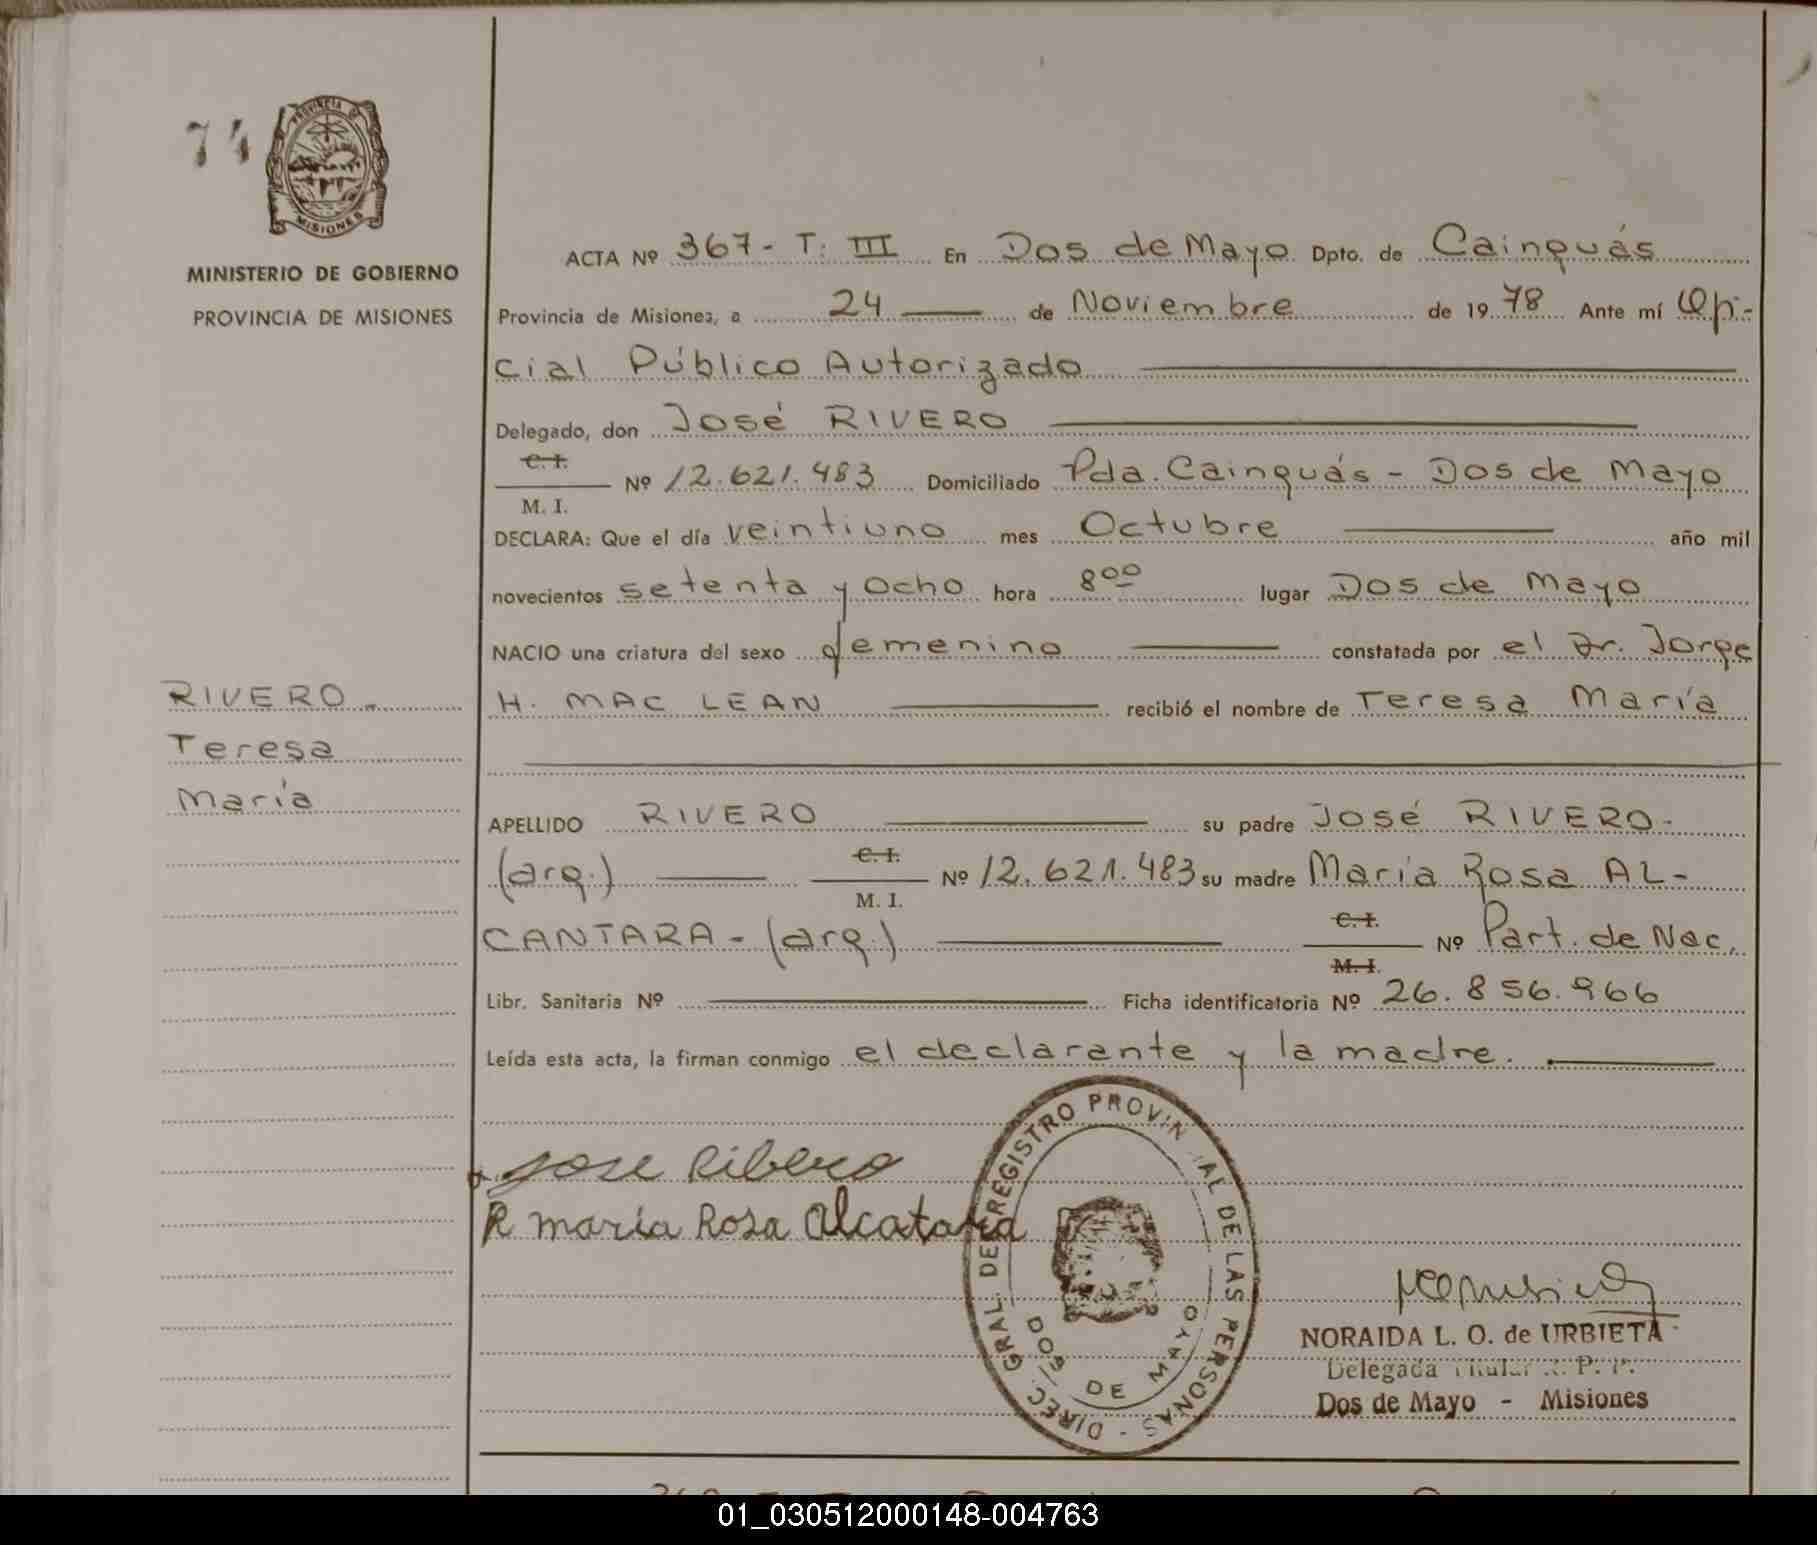 74
PROVINCIA DE
MISIONES
MINISTERIO DE GOBIERNO
PROVINCIA DE MISIONES
RIVERO.
Teresa
María
ACTA Nº 367 - T: III En Dos de Mayo Dpto. de Cainguás
Provincia de Misiones, a 24 de Noviembre de 1978 Ante mí Ofi-
cial Público Autorizado
Delegado, don José RIVERO
C. I.
M. I. Nº 12.621.483 Domiciliado Pda. Cainguás - Dos de Mayo
DECLARA: Que el día veintiuno mes Octubre año mil
novecientos setenta y ocho hora 8⁰⁰ lugar Dos de Mayo
NACIO una criatura del sexo femenino constatada por el Dr. Jorge
H. MAC LEAN recibió el nombre de Teresa María
APELLIDO RIVERO su padre José RIVERO.
(arg.) C. I. M. I. Nº 12.621.483 su madre María Rosa AL-
CANTARA - (arg.) C. I. M. I. Nº Part. de Nac.
Libr. Sanitaria Nº Ficha identificatoria Nº 26.856.966
Leída esta acta, la firman conmigo el declarante y la madre.
Jose Ribero
R maria Rosa Alcatara
DIREC. GRAL. DEL REGISTRO PROVINCIAL DE LAS PERSONAS -
DOS DE MAYO
NORAIDA L. O. de URBIETA
Delegada Titular R. P. P.
Dos de Mayo - Misiones
01_030512000148-004763